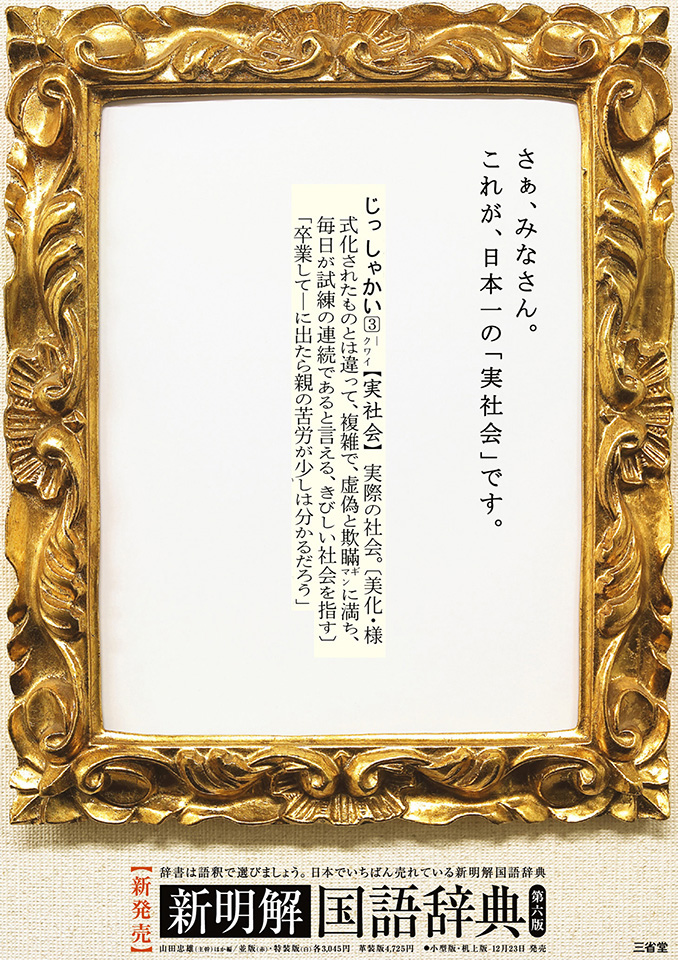 さぁ、みなさん。
これが、日本一の「実社会」です。
じっ しゃかい③ ―クワイ【実社会】 実際の社会。〔美化・様
式化されたものとは違って、複雑で、虚偽と欺瞞ギマンに満ち、
毎日が試練の連続であると言える、きびしい社会を指す〕
「卒業して―に出たら親の苦労が少しは分かるだろう」
【新発売】
辞書は語釈で選びましょう。日本でいちばん売れている新明解国語辞典
新明解国語辞典 第六版
山田忠雄(主幹)ほか編/並版(赤)・特装版(白)各3,045円 革装版4,725円 ●小型版・机上版 12月23日 発売
三省堂